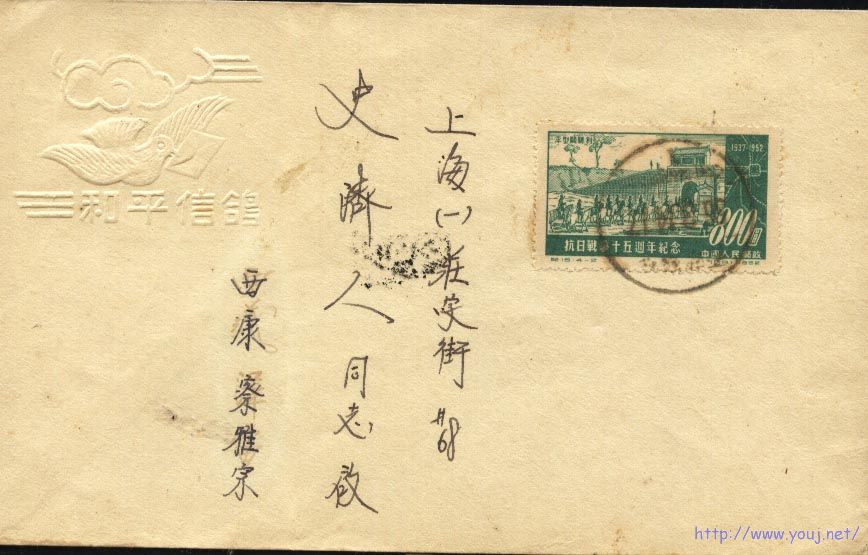 和平信鴿
平型關勝利
1937-1952
800圓
抗日戰爭十五週年紀念
中國人民郵政
上海(一)莊安街#68
史濟人同志啟
西康察雅宗
http://www.youj.net/